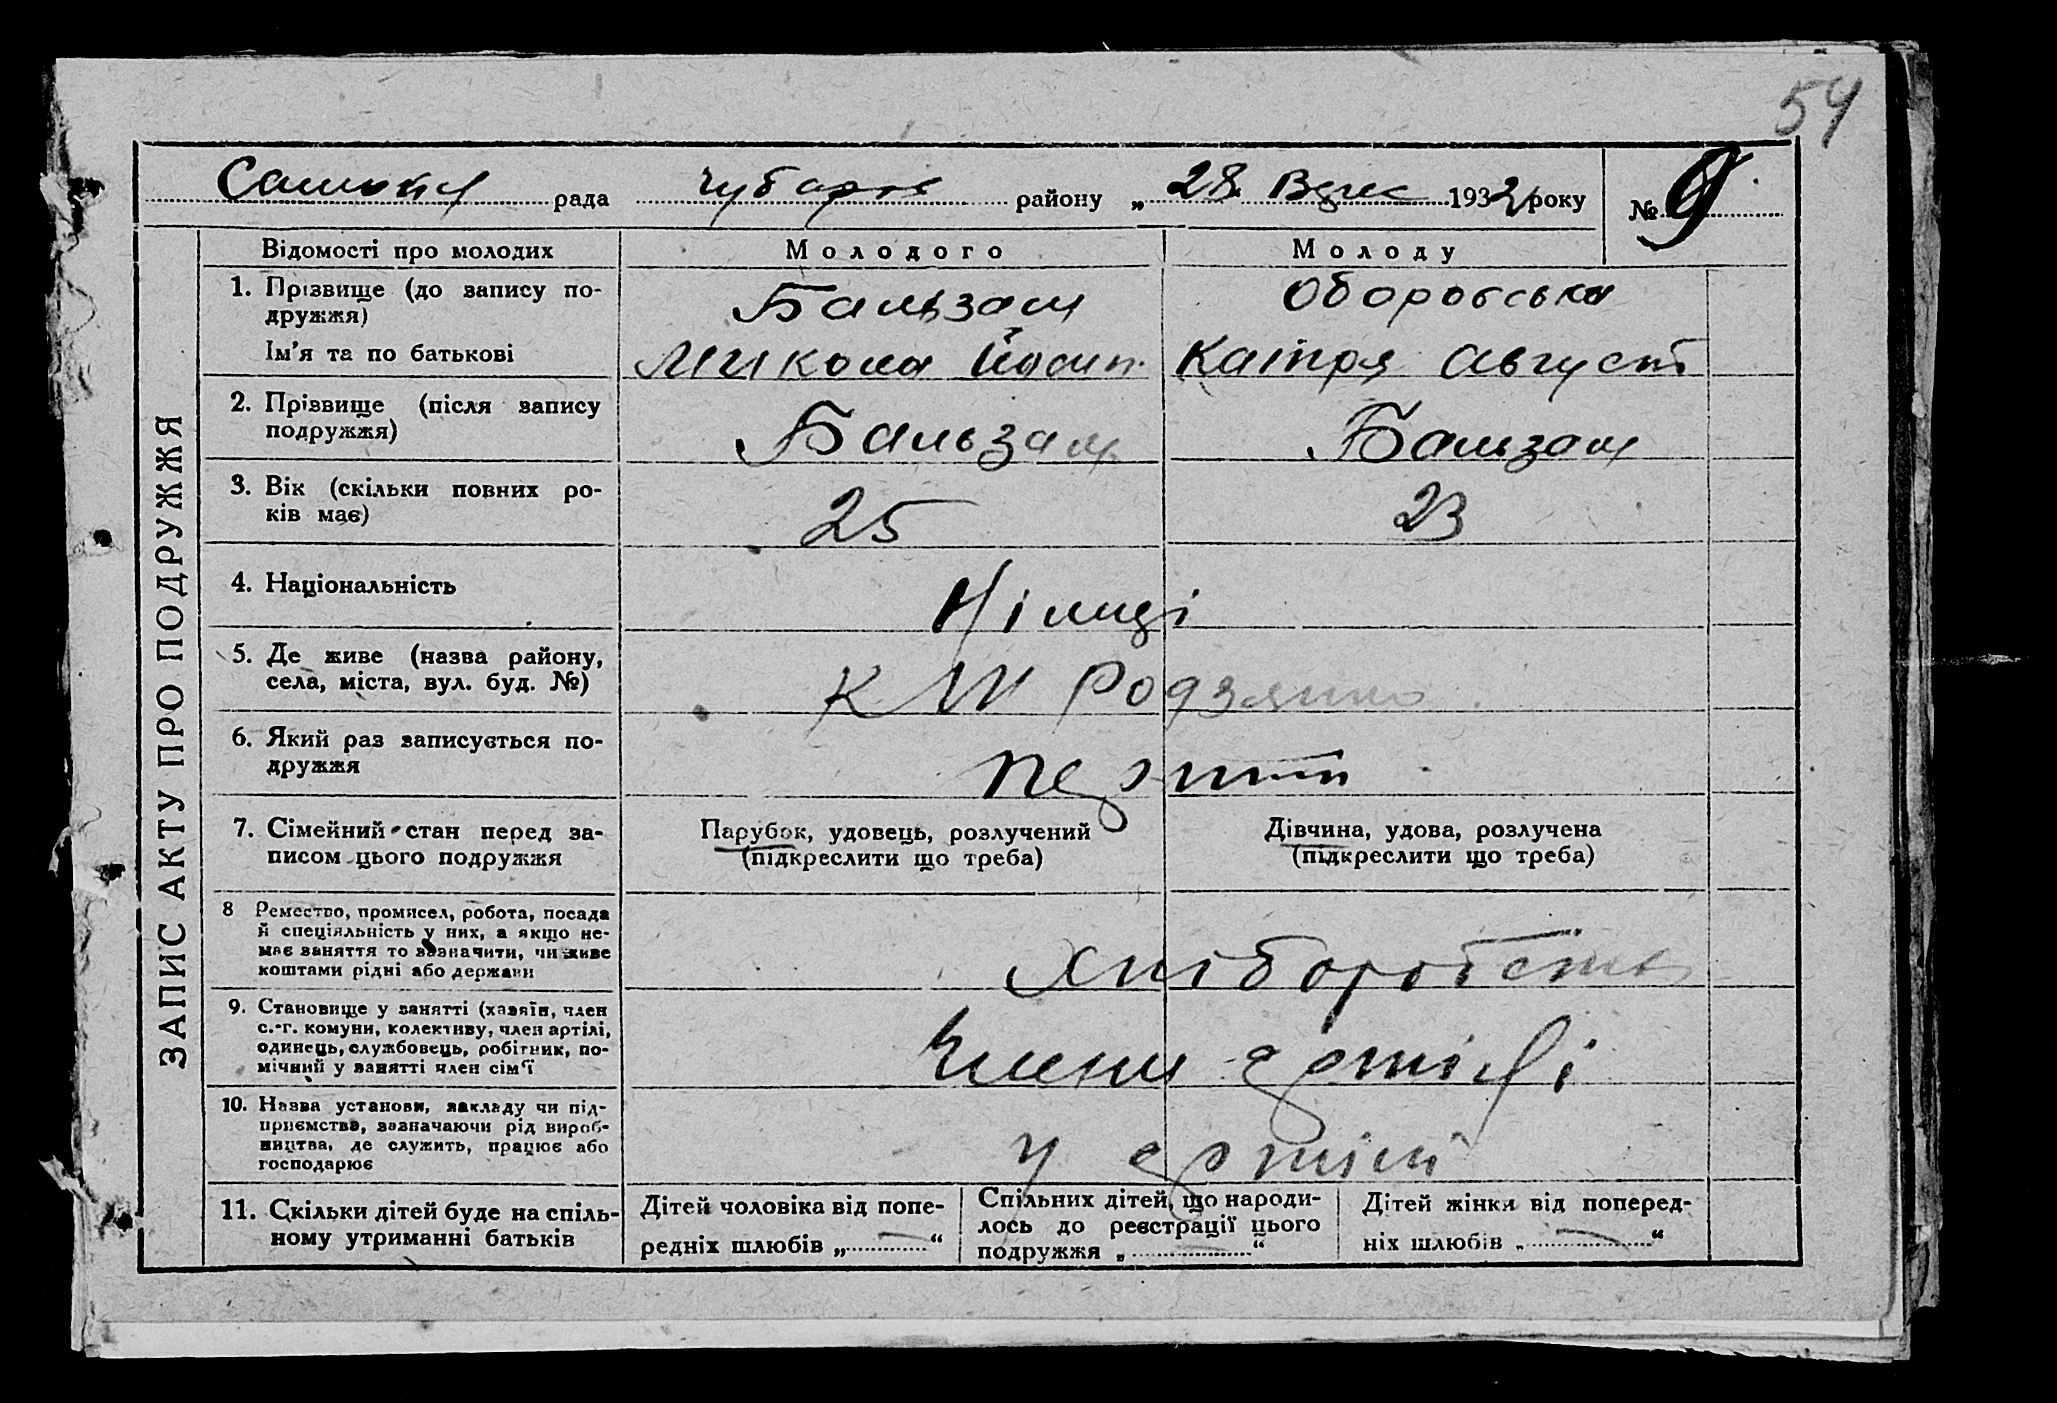 54
рада чубарів району „ 28 Верес 1932 року № 9
ЗАПИС АКТУ ПРО ПОДРУЖЖЯ
Відомості про молодих Молодого Молоду
1. Прізвище (до запису по- Бальзам Оборовська
дружжя)
Ім'я та по батькові Микола Йосип. Катря Август
2. Прізвище (після запису Бальзам Бальзам
подружжя)
3. Вік (скільки повних ро- 25 23
ків має)
4. Національність Німці
5. Де живе (назва району, К М Родзянко
села, міста, вул. буд. №)
6. Який раз записується по- перший
дружжя
7. Сімейний стан перед за- Парубок, удовець, розлучений Дівчина, удова, розлучена
писом цього подружжя (підкреслити що треба) (підкреслити що треба)
8 Ремество, промисел, робота, посада
й спеціяльність у них, а якщо не-
має заняття то зазначити, чи живе Хліборобство
коштами рідні або держави
9. Становище у занятті (хазяїн, член
с.-г. комуни, колективу, член артілі, Члени артілі
одинець, службовець, робітник, по-
мічний у занятті член сім'ї
10. Назва установи, закладу чи під-
приємства, зазначаючи рід вироб- у артілі
ництва, де служить, працює або
господарює
11. Скільки дітей буде на спіль- Дітей чоловіка від попе- Спільних дітей, що народи- Дітей жінки від поперед-
ному утриманні батьків редніх шлюбів „ — “ лось до реєстрації цього ніх шлюбів „ — “
подружжя „ — “